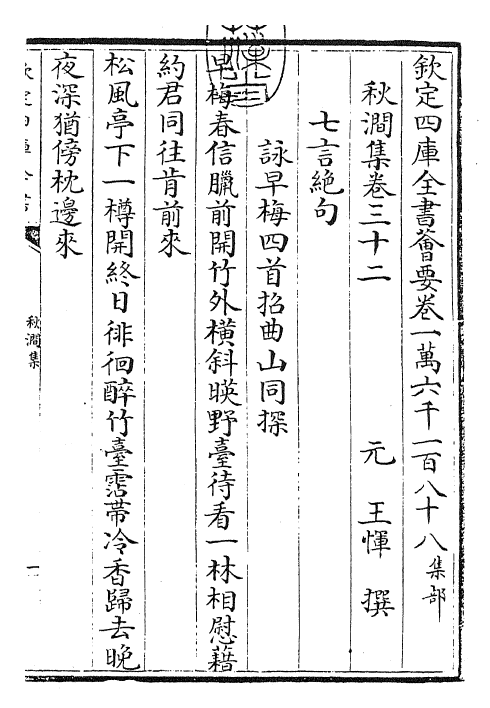 欽定四庫全書薈要卷一萬六千一百八十八集部
秋澗集卷三十二　元　王惲　撰
七言絶句
詠早梅四首招曲山同探
早梅春信臘前開竹外横斜暎野臺待看一林相慰藉
約君同往肯前來
松風亭下一樽開終日徘徊醉竹臺霑帶冷香歸去晚
夜深猶傍枕邊來
欽定四庫全書
秋澗集
一